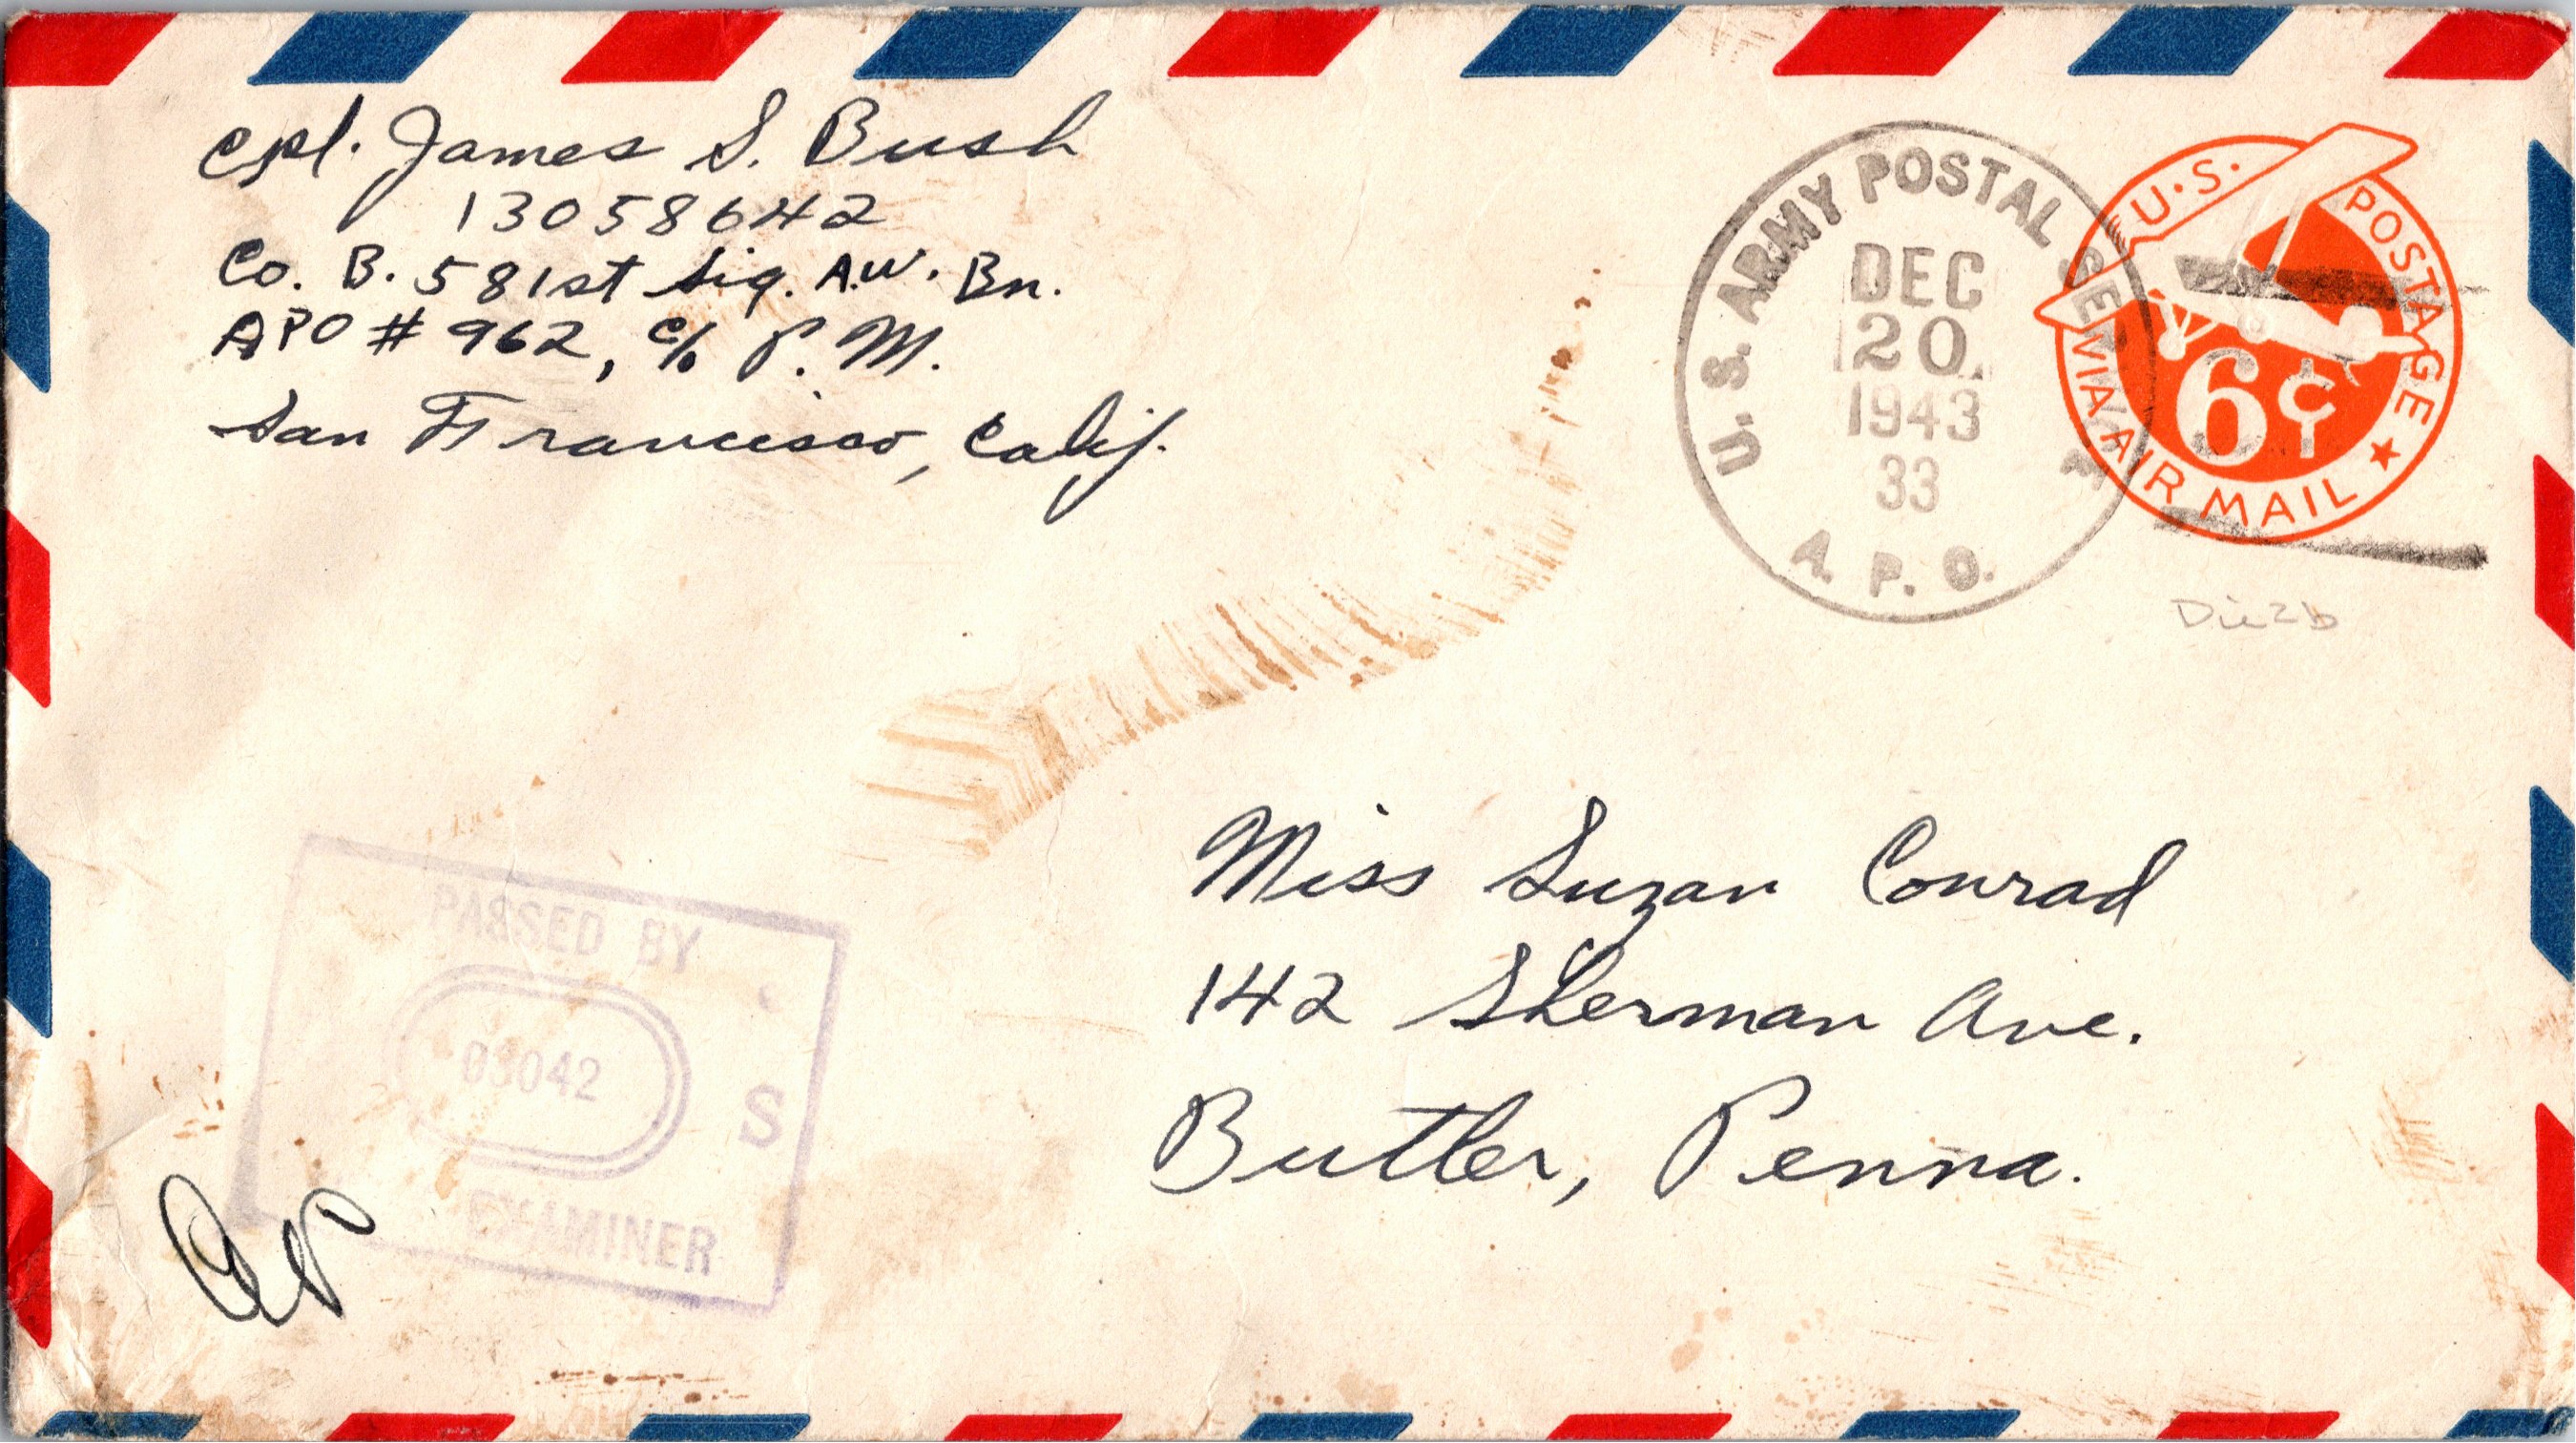 Cpl. James S. Bush
13058642
Co. B. 581st Sig. A.W. Bn.
APO # 962, c/o P.M.
San Francisco, Calif.
U.S. ARMY POSTAL SERVICE
DEC
20
1943
33
A. P. O.
U.S. POSTAGE
6¢
VIA AIR MAIL
Die2b
Miss Suzan Conrad
142 Sherman Ave.
Butler, Penna.
PASSED BY
03042
S
EXAMINER